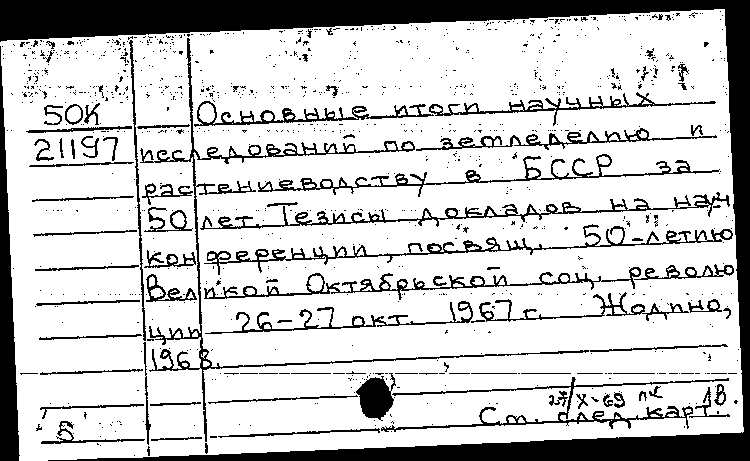 50К Основные итоги научных
21197 исследований по земледелию и
растениеводству в БССР за
50 лет. Тезисы докладов на науч
конференции, посвящ. 50-летию
Великой Октябрьской соц. револю
ции 26-27 окт. 1967 г. Жодино,
1968.
X-69 ЛВ.
Б См. след. карт.